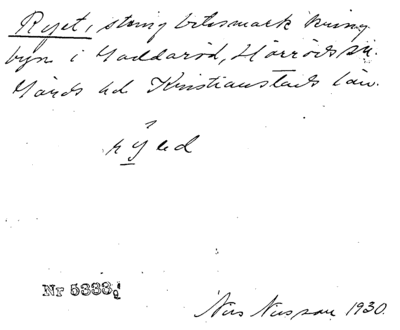 Ryet, stenig betesmark kring
byn i Gaddaröd, Hörröds sn.
Gärds hd Kristianstads län.
ryed
Nr 5333
Nils Nilsson 1930.